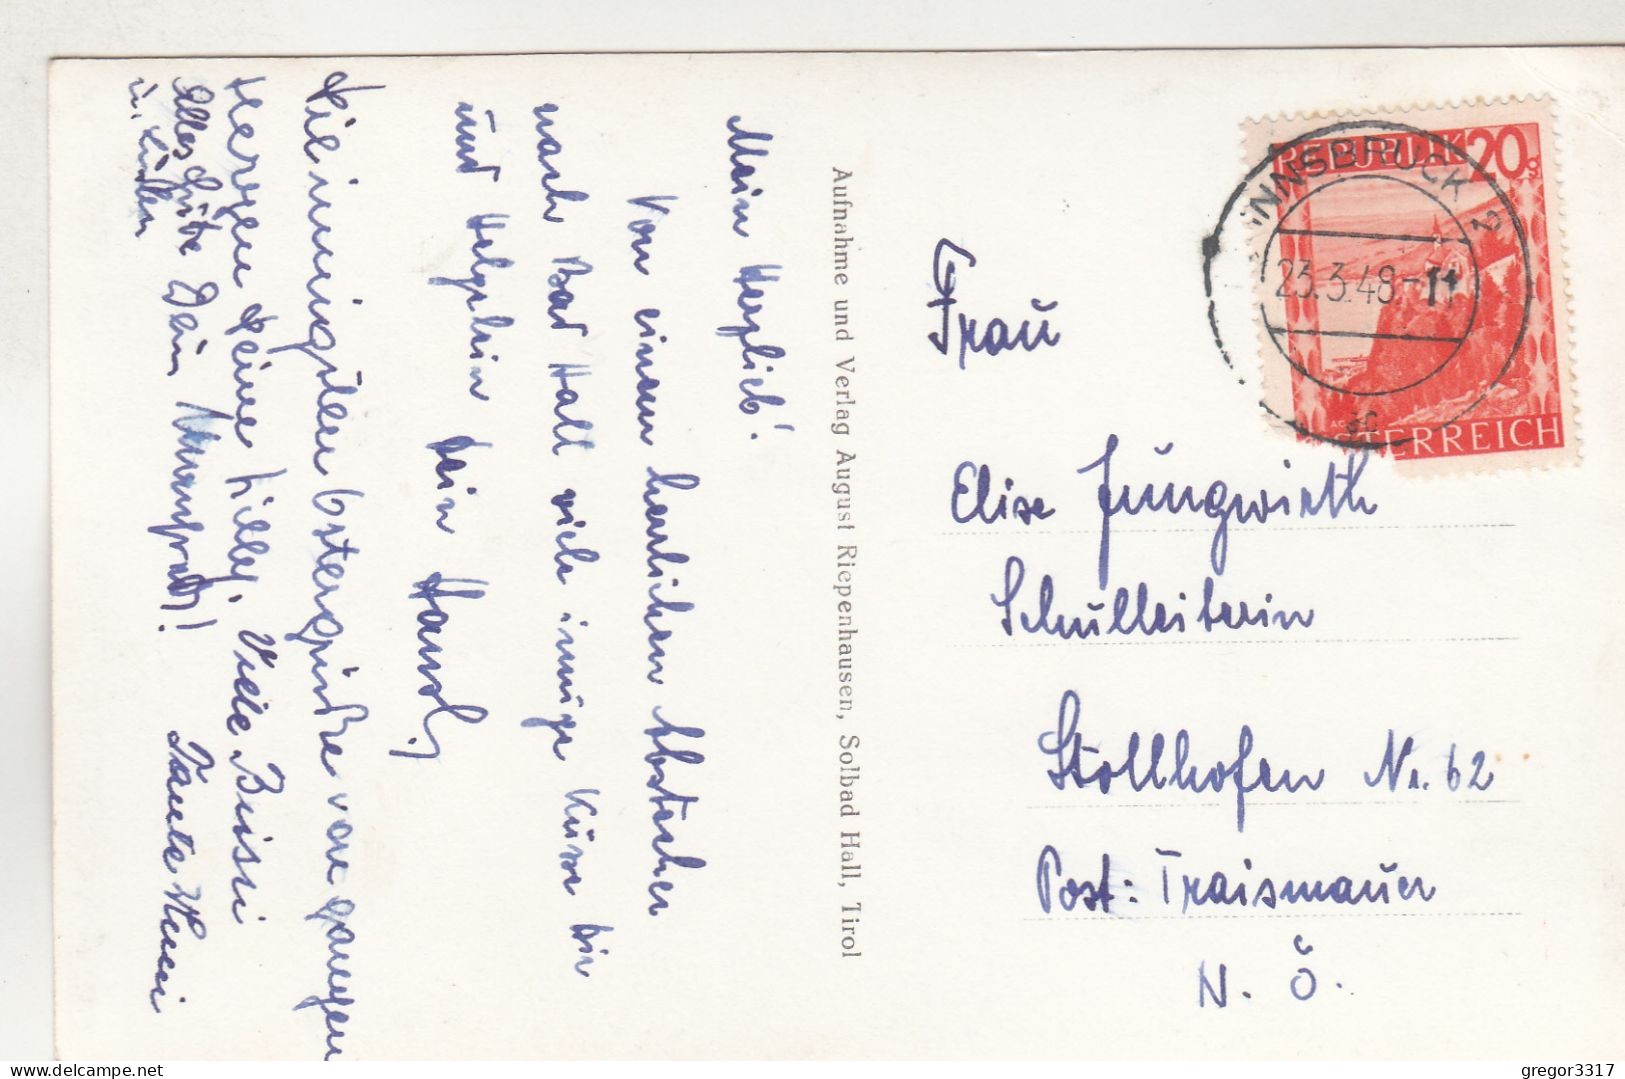 Mein Herzlieb!
Von einem herrlichen Abstecher
nach Bad Hall viele innige Küsse Dir
und Helgelein Dein Hansl.
Die innigsten Ostergrüße von ganzen
Herzen Deine Lilly. Viele Bussi
Tante Mimi
Alles Gute Dein
u.
Aufnahme und Verlag August Riepenhausen, Solbad Hall, Tirol
REPUBLIK 20g
ÖSTERREICH
INNSBRUCK 2
23.3.48-11
Frau
Elise Jungwirth
Schulleiterin
Stollhofen Nr. 62
Post: Traismauer
N. Ö.
gregor3317